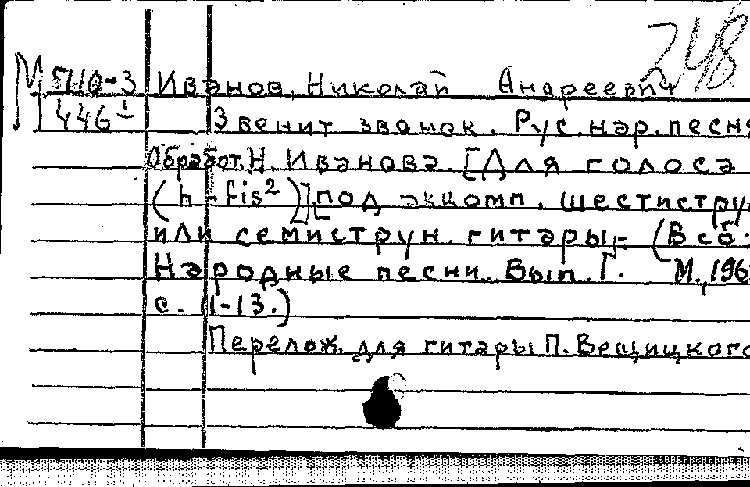 248
М 5110-3 Иванов, Николай Андреевич
446 1 Звенит звонок. Рус. нар. песня
Обработ. Н. Иванова [Для голоса
(h - fis²)] [под аккомп. шестистру
или семиструн. гитары. - (В сб.:
Народные песни. Вып. I. М., 196
с. 11-13.)
Перелож. для гитары П. Вещицкого